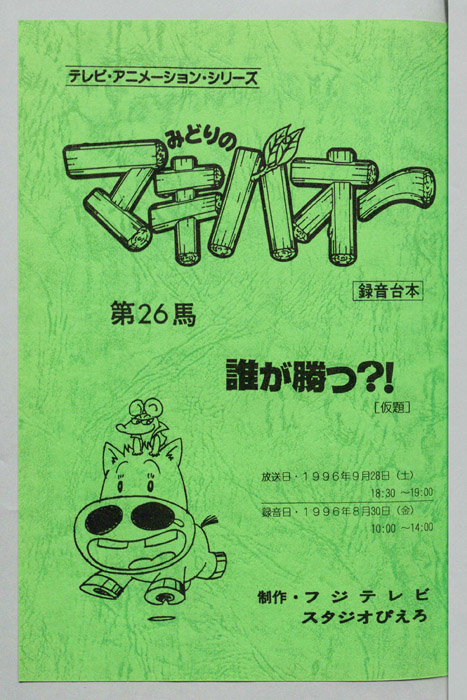 テレビ・アニメーション・シリーズ
みどりの
マキバオー
録音台本
第26馬
誰が勝つ?!
[仮題]
放送日・1996年9月28日(土)
18:30 ～19:00
録音日・1996年8月30日(金)
10:00 ～14:00
制作・フジテレビ
スタジオぴえろ